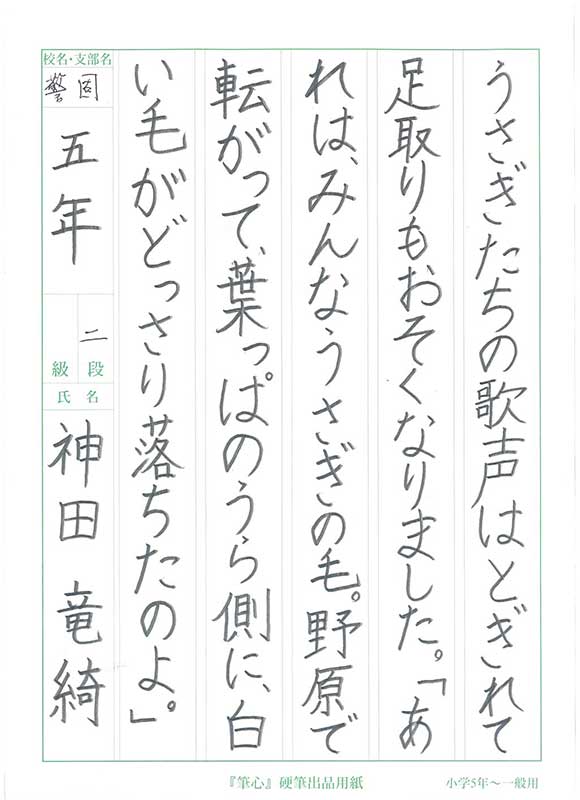 うさぎたちの歌声はとぎれて
足取りもおそくなりました。「あ
れは、みんなうさぎの毛。野原で
転がって、葉っぱのうら側に、白
い毛がどっさり落ちたのよ。」
校名・支部名
警固
五年
二
段
級
氏名
神田 竜綺
『筆心』硬筆出品用紙
小学5年～一般用